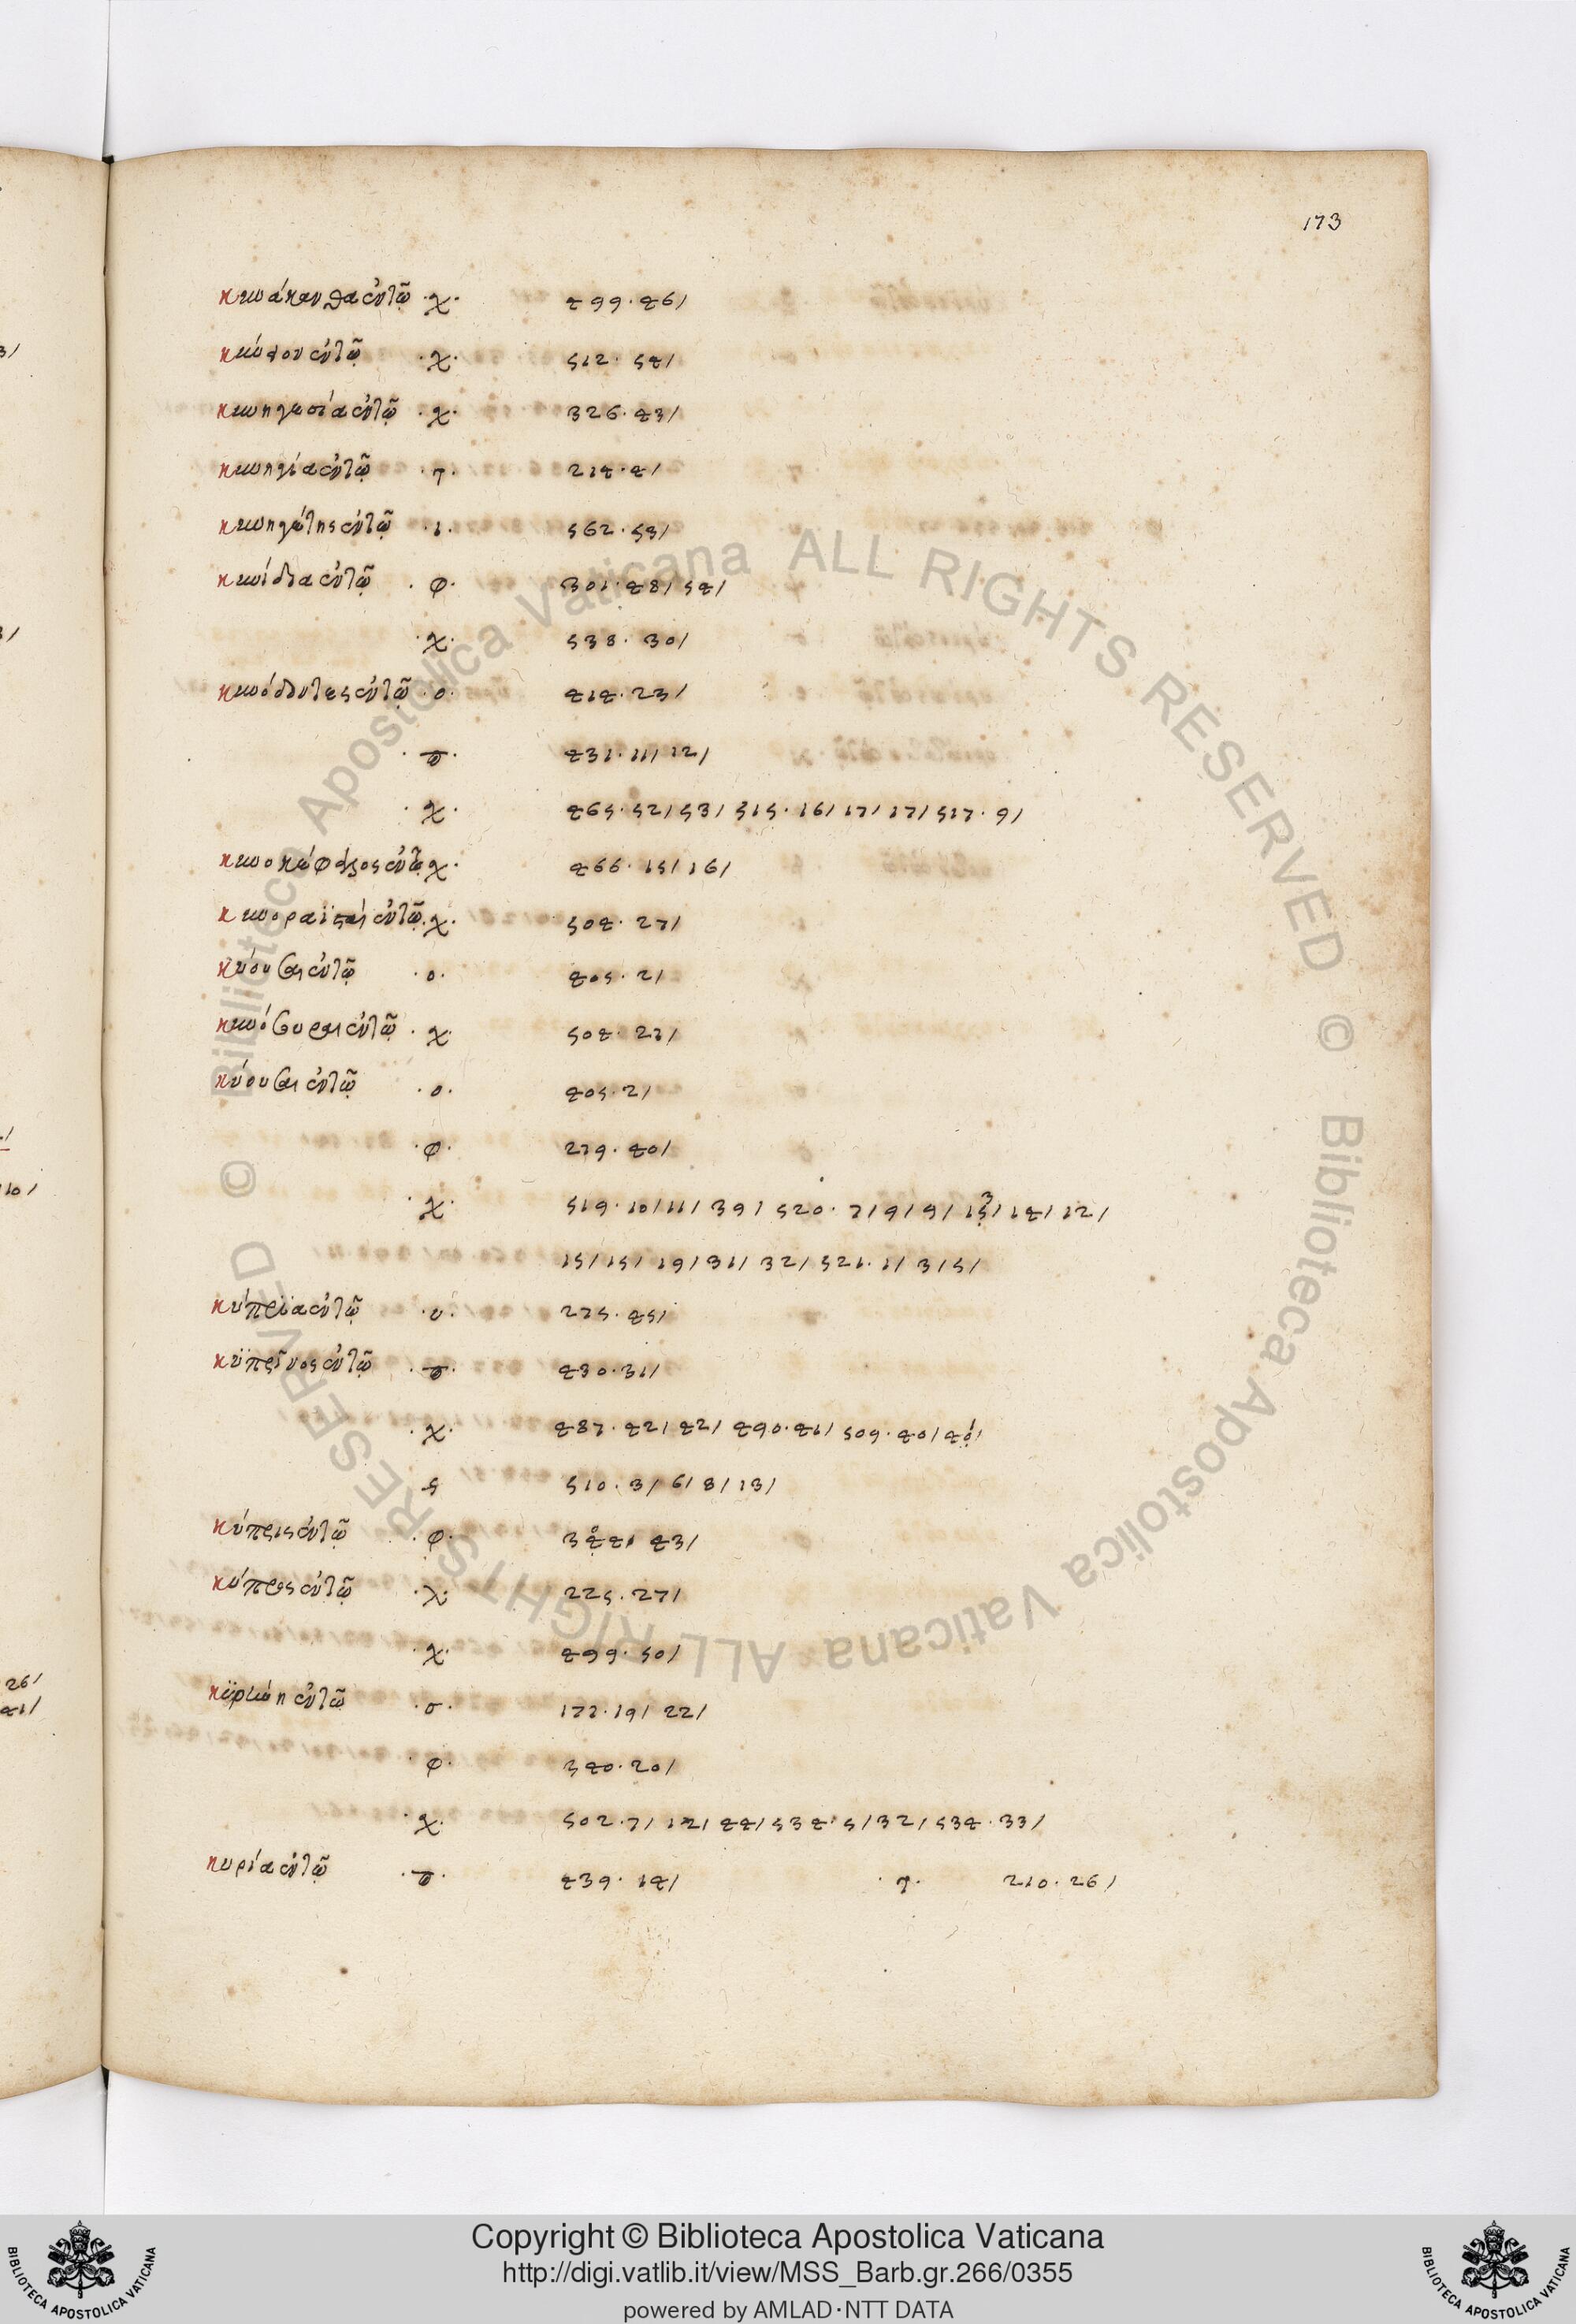 173
κυνάκανθα ἐν τῷ ·χ· 499·46/
·χ· 512· 54/
κυνηγεσία ἐν τῷ ·χ· 326·43/
κυνηγία ἐν τῷ 214·4/
κυνηγέτης ἐν τῷ ·ι· 562·53/
κυνίδια ἐν τῷ ·φ· 301·48/ 54/
·χ· 538· 30/
κυνόδοντες ἐν τῷ ·ο· 414·23/
431·11/ 12/
·χ· 465·52/ 53/ 515·16/ 17/ 17/ 517·9/
κυνοκέφαλος ἐν τῷ χ· 466·15/ 16/
κυνοραϊσταί ἐν τῷ ·χ· 504·27/
ἐν τῷ ·ο· 405·2/
κυνόσουραι ἐν τῷ ·χ· 504·
ἐν τῷ ·ο· 405·2/
·φ· 279·40/
·χ· 519·10/ 11/ 39/ 520·7/ 9/ 9/ 14/ 12/
15/ 15/ 19/ 31/ 32/ 521·1/ 3/ 5/
κύπρια ἐν τῷ ·υ· 275·45/
κυπρῖνος ἐν τῷ 430·31/
·χ· 487·42/ 42/ 490·41/ 509·40/
510·3/ 6/ 8/ 13/
κύπρις ἐν τῷ ·φ· 43/
κύπρος ἐν τῷ ·λ· 225·27/
·χ· 499·50/
κυρήνη ἐν τῷ ·σ· 177·19/ 22/
·φ· 340·20/
·χ· 502·7/ 12/ 44/ 534·5/ 32/ 534·33/
κυρία ἐν τῷ 439·14/ 210·26/
Copyright © Biblioteca Apostolica Vaticana
http://digi.vatlib.it/view/MSS_Barb.gr.266/0355
powered by AMLAD·NTT DATA
BIBLIOTECA APOSTOLICA VATICANA
BIBLIOTECA APOSTOLICA VATICANA
© Biblioteca Apostolica Vaticana ALL RIGHTS RESERVED © Biblioteca Apostolica Vaticana ALL RIGHTS RESERVED